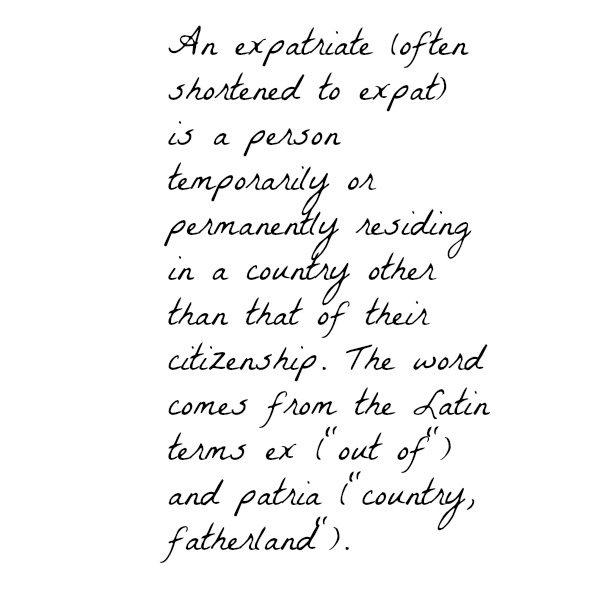 An expatriate (often
shortened to expat)
is a person
temporarily or
permanently residing
in a country other
than that of their
citizenship. The word
comes from the Latin
terms ex ("out of")
and patria ("country,
fatherland").